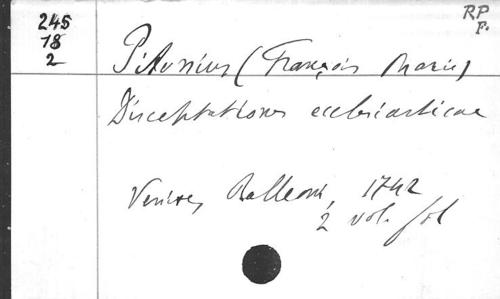 245
18
2
RP
F.
Pitonius (François Marie)
Disceptationes ecclesiasticae
Venise, Balleoni, 1742
2 vol. fol